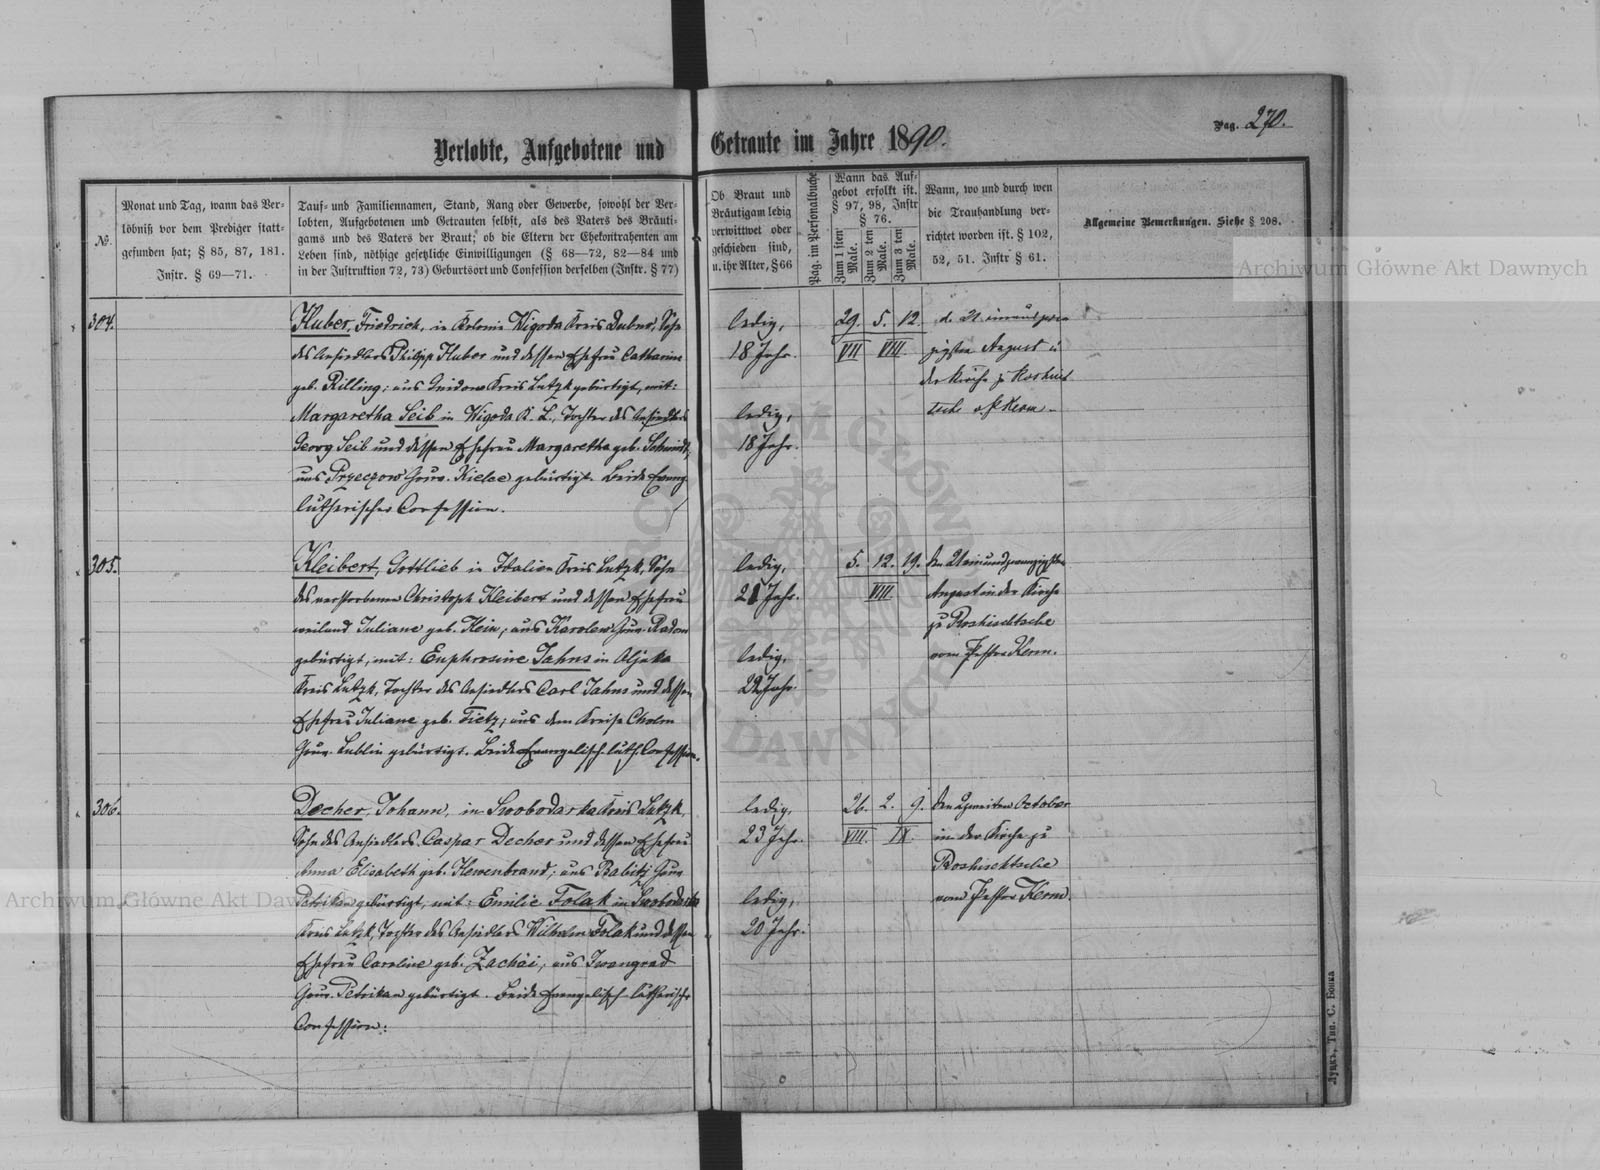 Pag. 270.
Verlobte, Aufgebotene und Getraute im Jahre 1890.
№.
Monat und Tag, wann das Ver-
löbniß vor dem Prediger statt-
gefunden hat; § 85, 87, 181.
Instr. § 69—71.
Tauf- und Familiennamen, Stand, Rang oder Gewerbe, sowohl der Ver-
lobten, Aufgebotenen und Getrauten selbst, als des Vaters des Bräuti-
gams und des Vaters der Braut; ob die Eltern der Ehekontrahenten am
Leben sind, nöthige gesetzliche Einwilligungen (§ 68—72, 82—84 und
in der Instruktion 72, 73) Geburtsort und Confession derselben (Instr. § 77)
Ob Braut und
Bräutigam ledig
verwittwet oder
geschieden sind,
u. ihr Alter, § 66
Pag. im Personalbuche
Wann das Auf-
gebot erfolkt ist.
§ 97, 98, Instr
§ 76.
Zum 1 sten Male.
Zum 2 ten Male.
Zum 3 ten Male.
Wann, wo und durch wen
die Trauhandlung ver-
richtet worden ist. § 102,
52, 51. Instr § 61.
Allgemeine Bemerkungen. Siehe § 208.
304.
Huber, Friedrich, in Kolonie Wigoda Kreis Dubno, Sohn
des Ansiedlers Philipp Huber und dessen Ehefrau Catharina
geb. Rilling; aus Kreis Lutzk gebürtigt, mit:
Margaretha Seib in Wigoda K. L., Tochter des Ansiedlers
Georg Seib und dessen Ehefrau Margaretha geb. Schmidt,
aus Przeczow Gouv. Kielce gebürtigt. Beide Evang.
lutherischer Confession.
ledig,
18 Jahr.
ledig,
18 Jahr.
29. 5. 12.
VII VIII.
d. 21 einundzwan
zigsten August in
der Kirche zu Roschist
tsche v. P. Kern.
305.
Kleibert, Gottlieb in Kreis Lutzk, Sohn
des verstorbenen Christoph Kleibert und dessen Ehefrau
weiland Juliane geb. Hein; aus Karolew Gouv. Radom
gebürtigt, mit: Euphrosine Jahns in Aljeka
Kreis Lutzk, Tochter des Ansiedlers Carl Jahns und dessen
Ehefrau Juliane geb. Tietz; aus dem Kreise Cholm
Gouv. Lublin gebürtigt. Beide Evangelisch-luth. Confession.
ledig,
21 Jahr.
ledig,
22 Jahr.
5. 12. 19.
VIII
den 21 einundzwanzigsten
August in der Kirche
zu Roshischtsche
vom Pastor Kern.
306.
Decher, Johann, in Swobodarka Kreis Lutzk,
Sohn des Ansiedlers Caspar Decher und dessen Ehefrau
Anna Elisabeth geb. Hewenbrand; aus Gouv.
Petrikau gebürtigt, mit: Emilie Folak in Swobodarka
Kreis Lutzk, Tochter des Ansiedlers Wilhelm Folak und dessen
Ehefrau Caroline geb. Zachäi, aus Iwangrad
Gouv. Petrikau gebürtigt. Beide Evangelisch-lutherischer
Confession.
ledig,
23 Jahr.
ledig,
20 Jahr.
26. 2. 9.
VIII. IX.
den 2 zweiten October
in der Kirche zu
Roshischtsche
vom Pastor Kern.
Луцкъ, Тип. С. Бонка
Archiwum Główne Akt Dawnych
Archiwum Główne Akt Dawnych